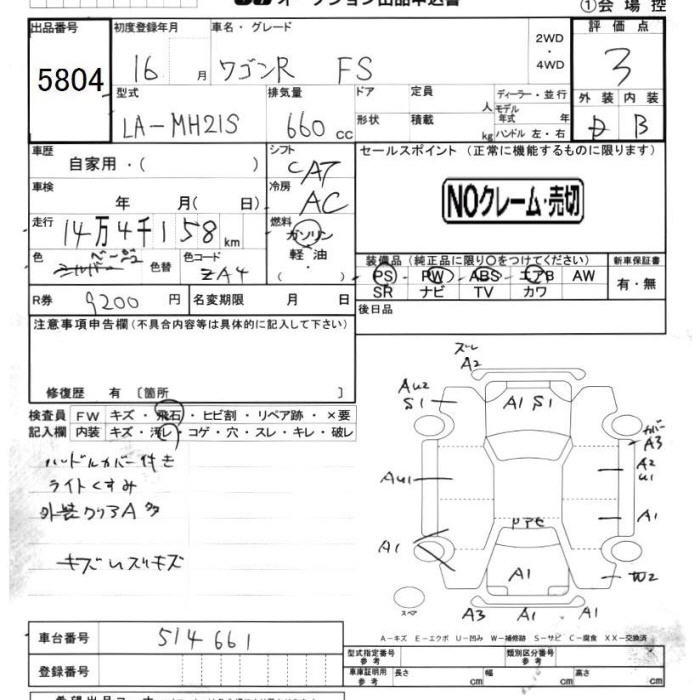 オークション出品申込書
①会場控
出品番号
5804
初度登録年月
16 月
車名・グレード
ワゴンR FS
2WD
・
4WD
評価点
3
型式
LA-MH21S
排気量
660 cc
ドア
形状
定員 人
積載 kg
ディーラー・並行
モデル年式 年
ハンドル 左・右
外装 内装
D B
車歴
自家用・( )
シフト
CAT
セールスポイント (正常に機能するものに限ります)
車検
年 月( 日)
冷房
AC
NOクレーム・売切
走行
14万4千158km
燃料
ガソリン
軽油
( )
色
シルバー ベージュ
色替
色コード
ZA4
装備品 (純正品に限り○をつけてください)
PS PW ABS エアB AW
SR ナビ TV カワ
新車保証書
有・無
R券
9200 円
名変期限 月 日
後日品
注意事項申告欄 (不具合内容等は具体的に記入して下さい)
修復歴 有 〔箇所 〕
検査員 FW キズ・飛石・ヒビ割・リペア跡・×要
記入欄 内装 キズ・汚レ・コゲ・穴・スレ・キレ・破レ
ハンドルカバー付き
ライトくすみ
外装クリアA多
キズ
スリキズ
ズレ
A2
AU2
S1
A1 S1
カバー
A3
A2
U1
AU1
A1
ドアセ
A1
A1
W2
スペア
A3 A1 A1
A-キズ E-エクボ U-凹み W-補修跡 S-サビ C-腐食 XX-交換済
車台番号
514661
登録番号
型式指定番号
参考
類別区分番号
参考
車庫証明用
参考
長さ cm
幅 cm
高さ cm
希望出品コーナー